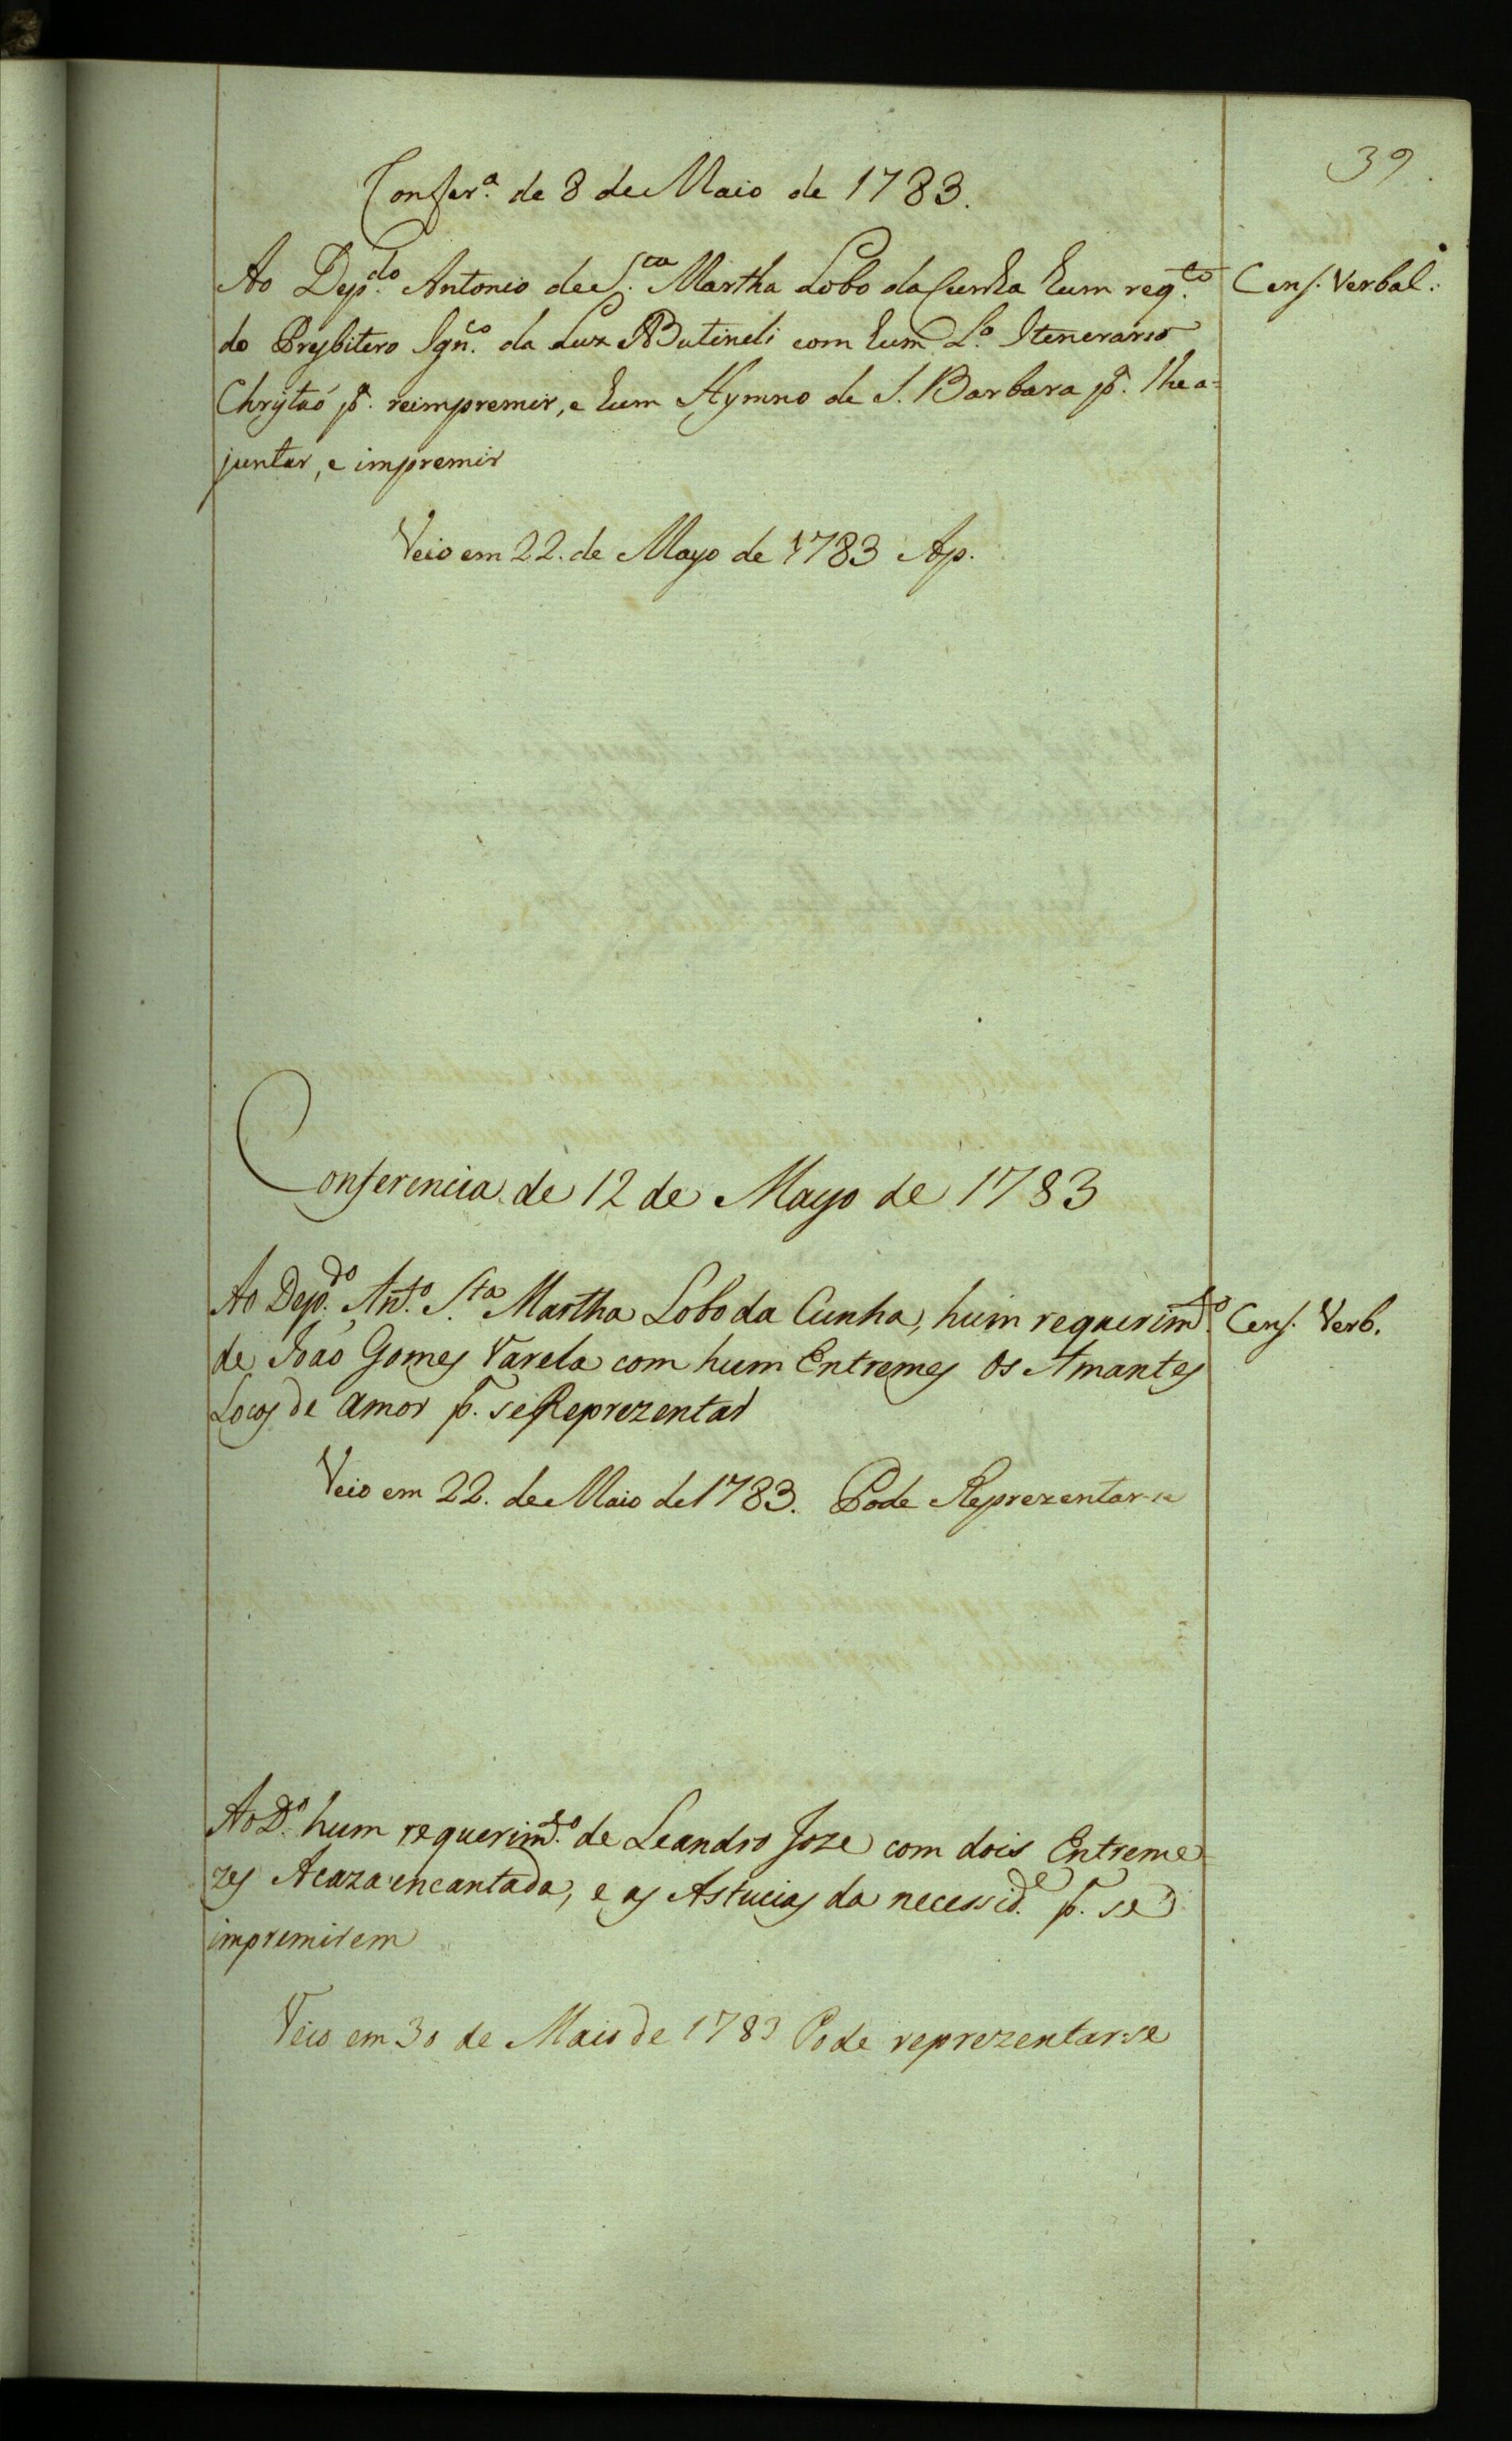 39.
Confer.ª de 8 de Maio de 1783.
Ao Dep.do Antonio de S.ta Martha Lobo da Cunha hum req.to
Cens. Verbal.
do Presbitero Ign.co da Luz Butineli com hum L.o Itenerario
Christaó p.ª reimpremir, e hum Hymno de S. Barbara p.ª lhe a=
juntar, e impremir
Veio em 22. de Mayo de 1783 Ap.
Conferencia de 12 de Mayo de 1783
Ao Dep.do Ant.o S.ta Martha Lobo da Cunha, hum requerim.to
Cens. Verb.
de Joaó Gomes Varela com hum Entremes Os Amantes
Locos de amor p.ª se Reprezentar
Veio em 22. de Maio de 1783. Pode Reprezentar-se
Ao D.o hum requerim.to de Leandro Joze com dois Entreme-
zes A caza encantada, e as Astucias da necessid.e p.ª se
impremirem
Veio em 30 de Maio de 1783 Pode reprezentar-se